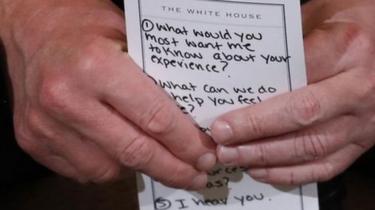 THE WHITE HOUSE
① What would you
most want me
to know about your
experience?
What can we do
help you feel
?
⑤ I hear you.